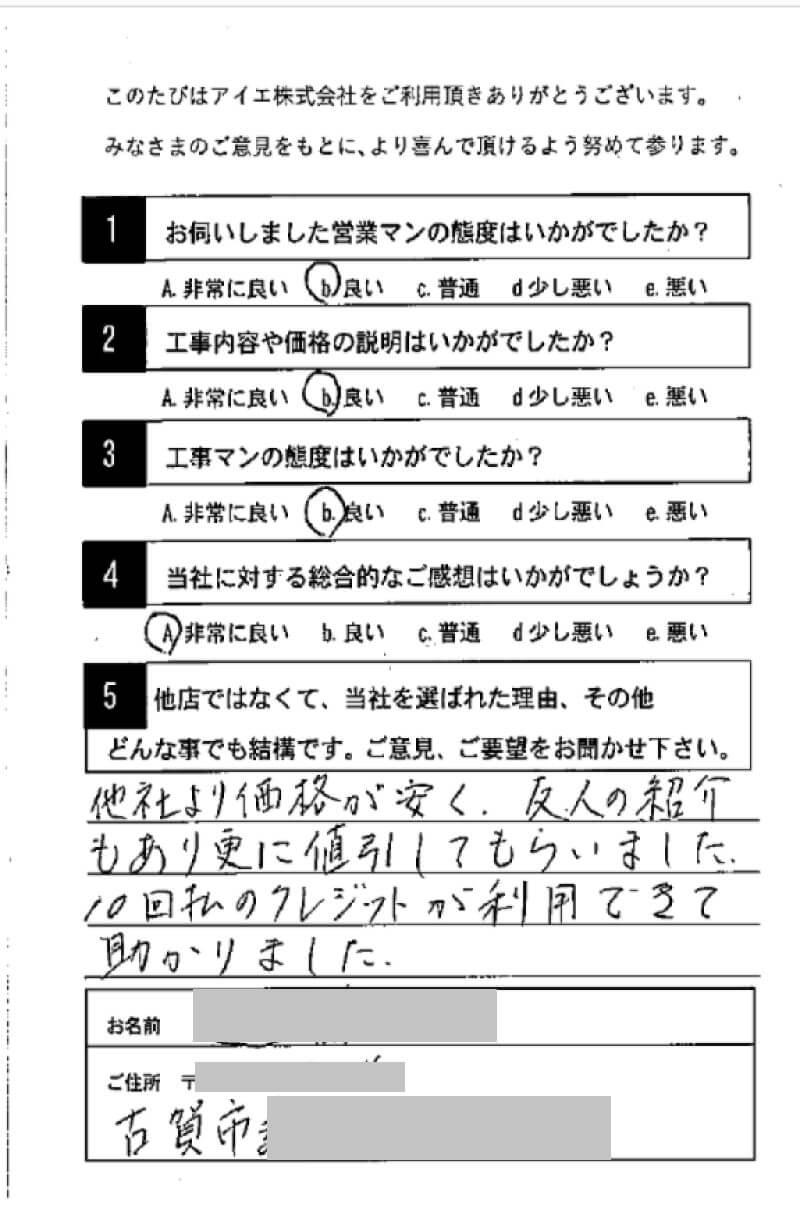 このたびはアイエ株式会社をご利用頂きありがとうございます。
みなさまのご意見をもとに、より喜んで頂けるよう努めて参ります。
1 お伺いしました営業マンの態度はいかがでしたか？
A. 非常に良い b. 良い c. 普通 d 少し悪い e. 悪い
2 工事内容や価格の説明はいかがでしたか？
A. 非常に良い b. 良い c. 普通 d 少し悪い e. 悪い
3 工事マンの態度はいかがでしたか？
A. 非常に良い b. 良い c. 普通 d 少し悪い e. 悪い
4 当社に対する総合的なご感想はいかがでしょうか？
A 非常に良い b. 良い c. 普通 d 少し悪い e. 悪い
5 他店ではなくて、当社を選ばれた理由、その他
どんな事でも結構です。ご意見、ご要望をお聞かせ下さい。
他社より価格が安く、友人の紹介
もあり更に値引してもらいました。
10回払のクレジットが利用できて
助かりました。
お名前
ご住所 〒
古賀市